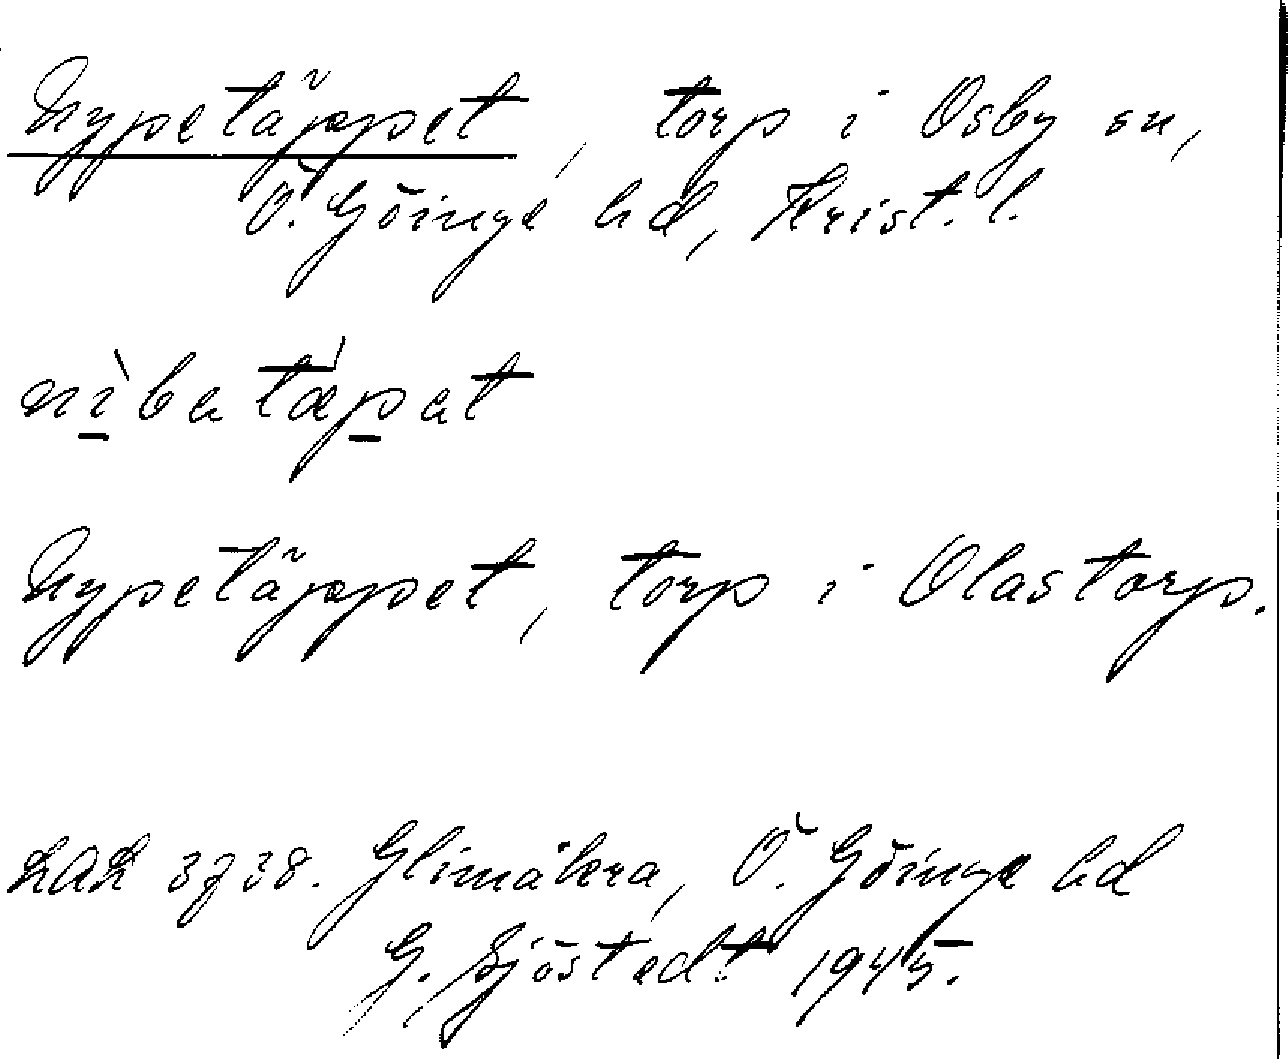 Nypetäppet, torp i Osby sn,
Ö. Göinge hd, Krist. l.
nìbatápat
Nypetäppet, torp i Olastorp.
LAL 3738. Glimåkra, Ö. Göinge hd
G. Sjöstedt 1945.